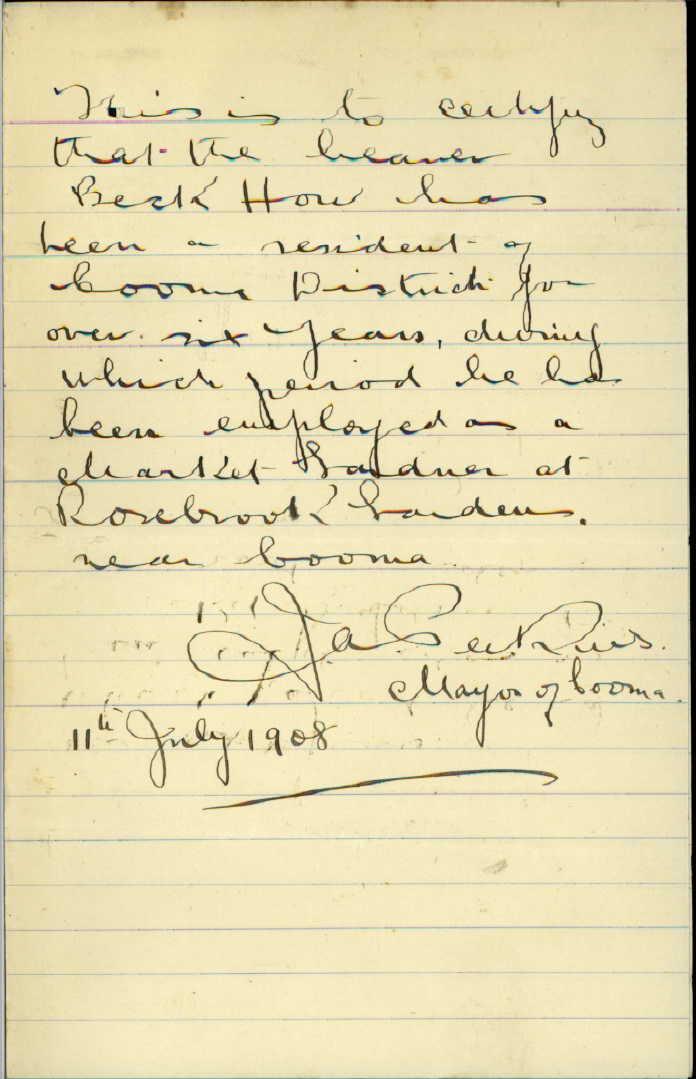 This is to certify
that the bearer
Beck How has
been a resident of
Cooma District for
over six years, during
which period he has
been employed as a
Market Gardner at
Rosebrook Gardens.
near Cooma
J.A. Perkins.
Mayor of Cooma.
11th July 1908